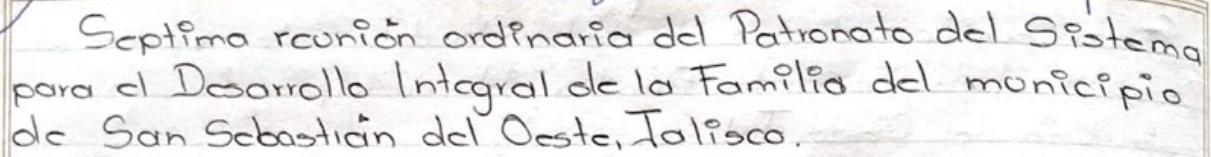 Septima reunión ordinaria del Patronato del Sistema
para el Desarrollo Integral de la Familia del municipio
de San Sebastián del Oeste, Jalisco.